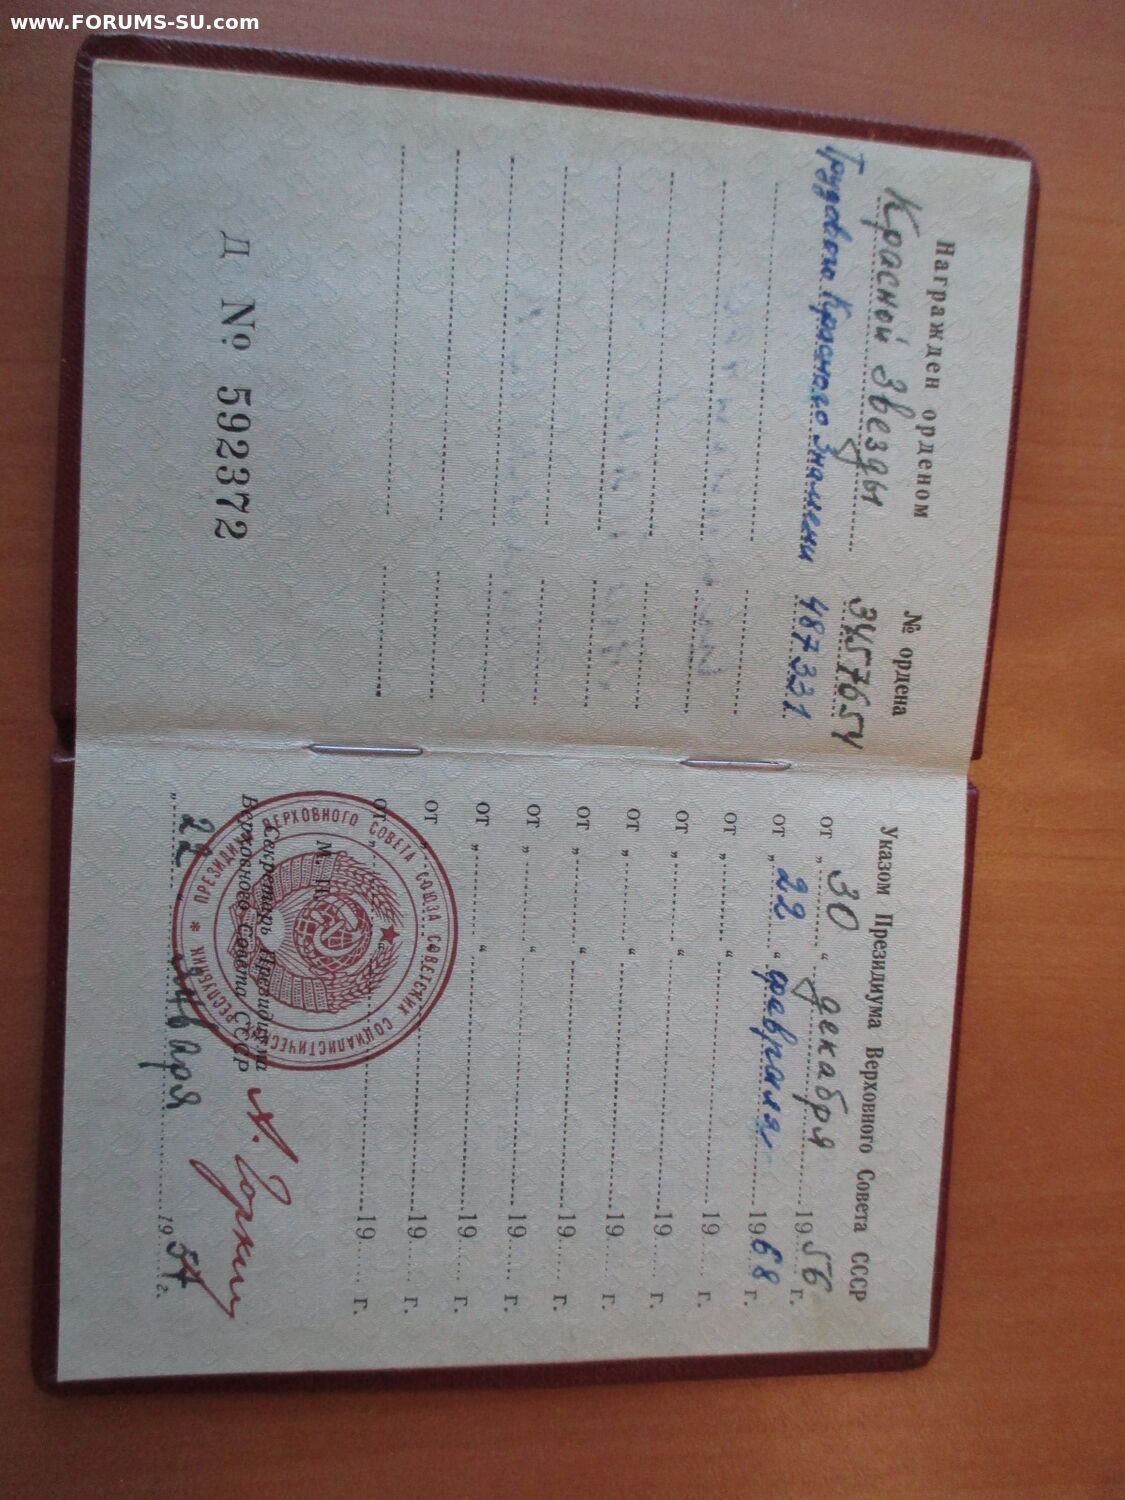 www.FORUMS-SU.com
Награжден орденом № ордена
Красной Звезды 3457654
Трудового Красного Знамени 487331
Д № 592372
Указом Президиума Верховного Совета СССР
от „ 30 “ декабря 1956 г.
от „ 22 “ февраля 1968 г.
от „ “ 19 г.
от „ “ 19 г.
от „ “ 19 г.
от „ “ 19 г.
от „ “ 19 г.
от „ “ 19 г.
от „ 19 г.
от „ “ 19 г.
М. П.
Секретарь Президиума
Верховного Совета СССР
А. Горкин
„ 22 “ января 1957 г.
ПРЕЗИДИУМ ВЕРХОВНОГО СОВЕТА СОЮЗА СОВЕТСКИХ СОЦИАЛИСТИЧЕСКИХ РЕСПУБЛИК